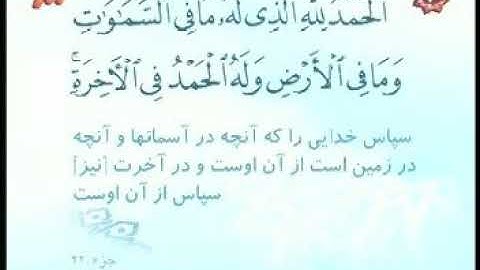 ٱلْحَمْدُ لِلَّهِ ٱلَّذِى لَهُۥ مَا فِى ٱلسَّمَٰوَٰتِ
وَمَا فِى ٱلْأَرْضِ وَلَهُ ٱلْحَمْدُ فِى ٱلْأَخِرَةِ ۚ
سپاس خدایی را که آنچه در آسمانها و آنچه
در زمین است از آن اوست و در آخرت [نیز]
سپاس از آن اوست
جزء ۲۲